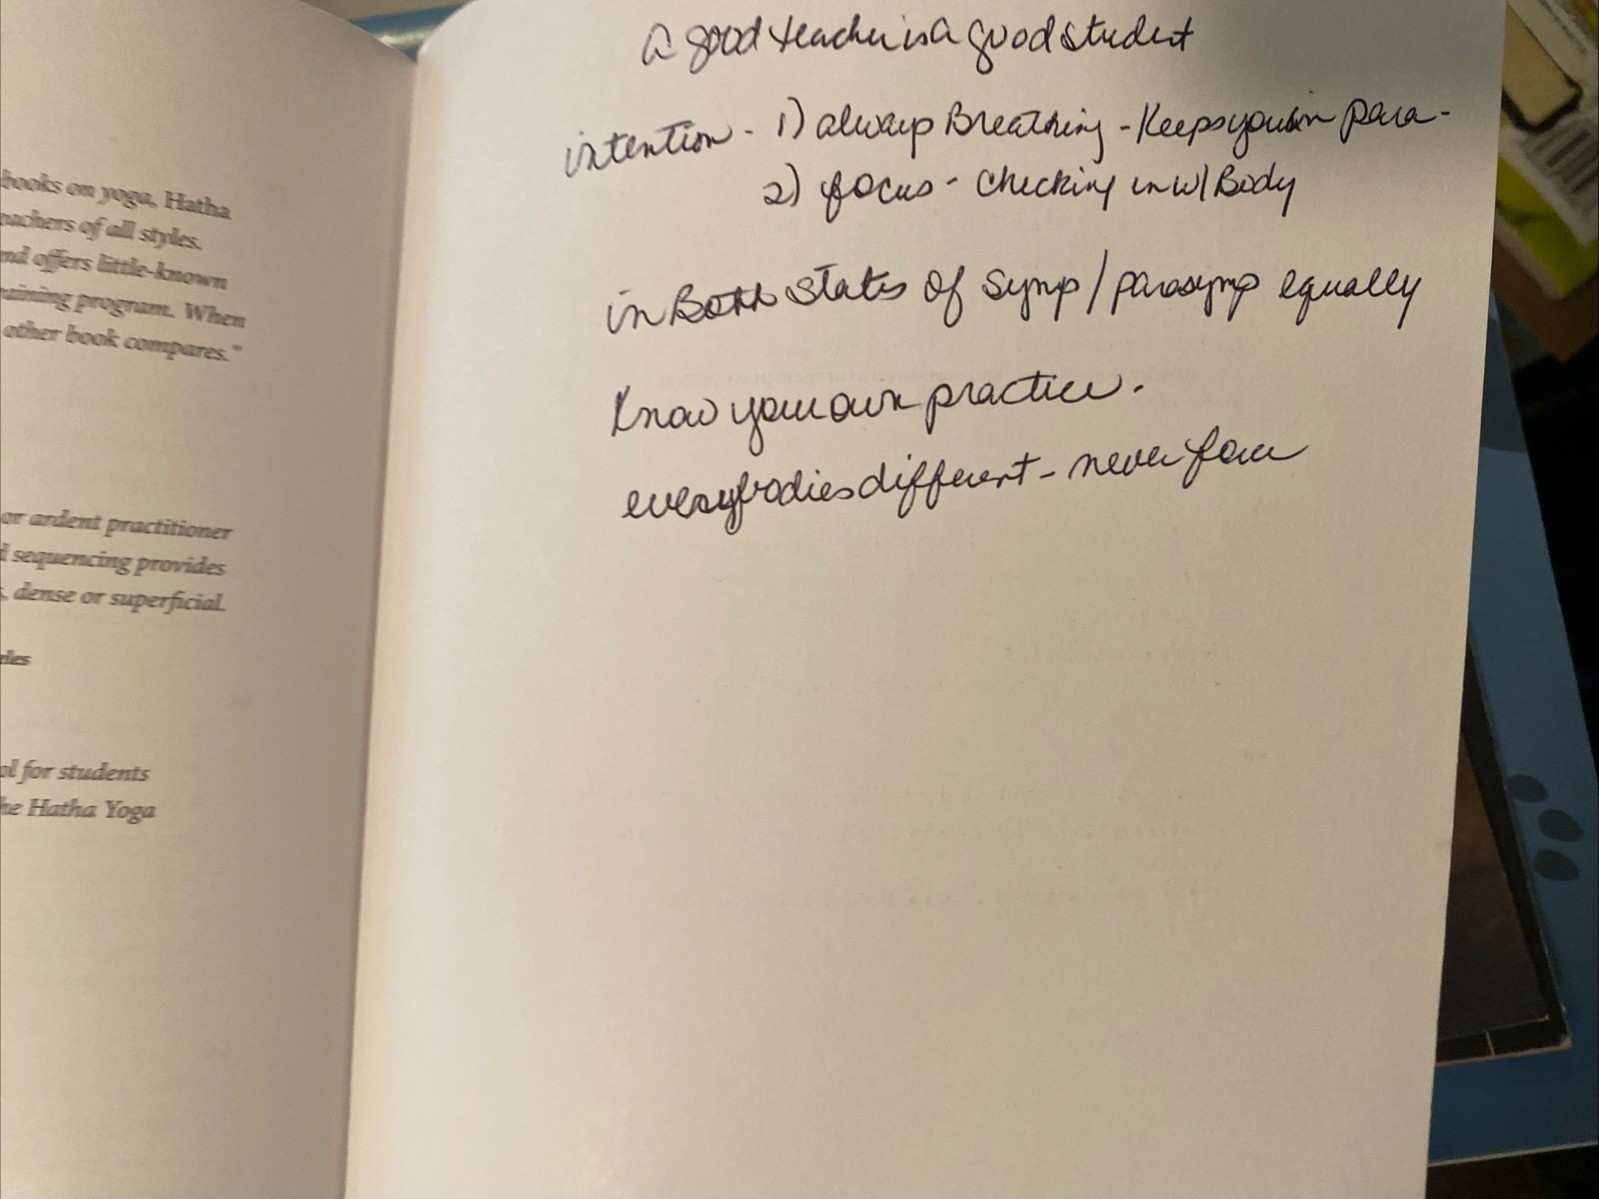 books on yoga, Hatha
eachers of all styles.
nd offers little-known
raining program. When
other book compares."
or ardent practitioner
d sequencing provides
s, dense or superficial.
eles
ol for students
he Hatha Yoga
a good teacher is a good student
intention - 1) always Breathing - Keeps you in para-
2) focus - Checking in w/ Body
in Both states of symp / parasymp equally
Know your own practice.
everybodies different - never force